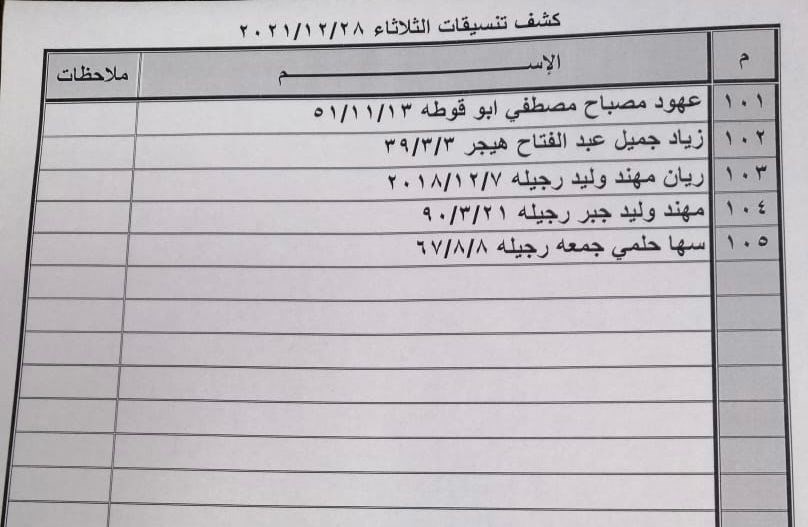 كشف تنسيقات الثلاثاء ٢٠٢١/١٢/٢٨
م الإســـــــــــــــــــــــم ملاحظات
١٠١ عهود مصباح مصطفي ابو قوطه ٥١/١١/١٣
١٠٢ زياد جميل عبد الفتاح هيجر ٣٩/٣/٣
١٠٣ ريان مهند وليد رجيله ٢٠١٨/١٢/٧
١٠٤ مهند وليد جبر رجيله ٩٠/٣/٢١
١٠٥ سها حلمي جمعه رجيله ٦٧/٨/٨